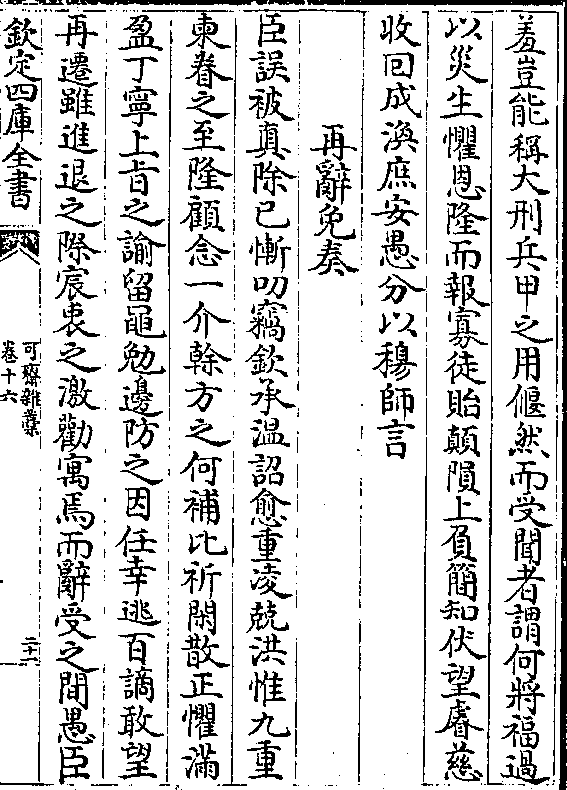 羞豈能稱大刑兵甲之用偃然而受聞者謂何將福過
以災生懼恩隆而報寡徒貽顛隕上負簡知伏望睿慈
收回成渙庶安愚分以穆師言
再辭免奏
臣誤被真除已慚叨竊欽承温詔愈重凌兢洪惟九重
柬眷之至隆顧念一介榦方之何補比祈閑散正懼滿
盈丁寧上㫖之諭留黽勉邊防之因任幸逃百謫敢望
再遷雖進退之際宸衷之激勸寓焉而辭受之間愚臣
欽定四庫全書
可齋雜藁
卷十六
二十六